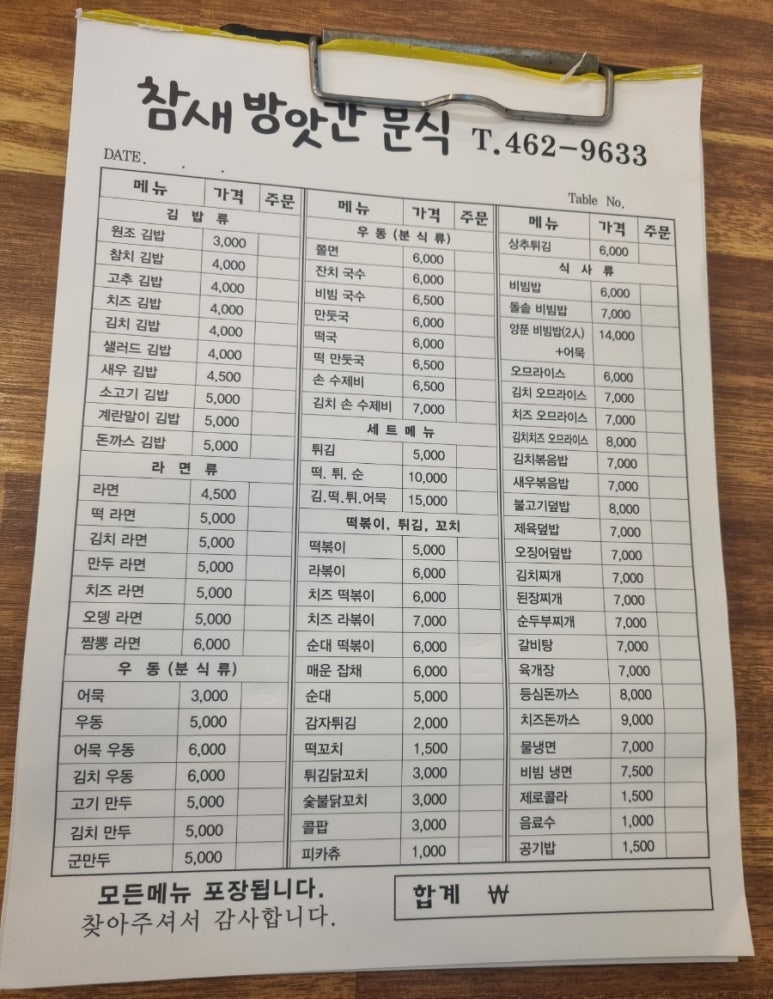 참새 방앗간 분식 T.462-9633
DATE. . .
Table No.
메뉴 가격 주문
김 밥 류
원조 김밥 3,000
참치 김밥 4,000
고추 김밥 4,000
치즈 김밥 4,000
김치 김밥 4,000
샐러드 김밥 4,000
새우 김밥 4,500
소고기 김밥 5,000
계란말이 김밥 5,000
돈까스 김밥 5,000
라 면 류
라면 4,500
떡 라면 5,000
김치 라면 5,000
만두 라면 5,000
치즈 라면 5,000
오뎅 라면 5,000
짬뽕 라면 6,000
우 동 (분 식 류)
어묵 3,000
우동 5,000
어묵 우동 6,000
김치 우동 6,000
고기 만두 5,000
김치 만두 5,000
군만두 5,000
메뉴 가격 주문
우 동 (분 식 류)
쫄면 6,000
잔치 국수 6,000
비빔 국수 6,500
만둣국 6,000
떡국 6,000
떡 만둣국 6,500
손 수제비 6,500
김치 손 수제비 7,000
세 트 메 뉴
튀김 5,000
떡. 튀. 순 10,000
김.떡.튀.어묵 15,000
떡볶이, 튀김, 꼬치
떡볶이 5,000
라볶이 6,000
치즈 떡볶이 6,000
치즈 라볶이 7,000
순대 떡볶이 6,000
매운 잡채 6,000
순대 5,000
감자튀김 2,000
떡꼬치 1,500
튀김닭꼬치 3,000
숯불닭꼬치 3,000
콜팝 3,000
피카츄 1,000
메뉴 가격 주문
상추튀김 6,000
식 사 류
비빔밥 6,000
돌솥 비빔밥 7,000
양푼 비빔밥(2人) 14,000
+어묵
오므라이스 6,000
김치 오므라이스 7,000
치즈 오므라이스 7,000
김치치즈 오므라이스 8,000
김치볶음밥 7,000
새우볶음밥 7,000
불고기덮밥 8,000
제육덮밥 7,000
오징어덮밥 7,000
김치찌개 7,000
된장찌개 7,000
순두부찌개 7,000
갈비탕 7,000
육개장 7,000
등심돈까스 8,000
치즈돈까스 9,000
물냉면 7,000
비빔 냉면 7,500
제로콜라 1,500
음료수 1,000
공기밥 1,500
모든메뉴 포장됩니다.
찾아주셔서 감사합니다.
합계 ₩